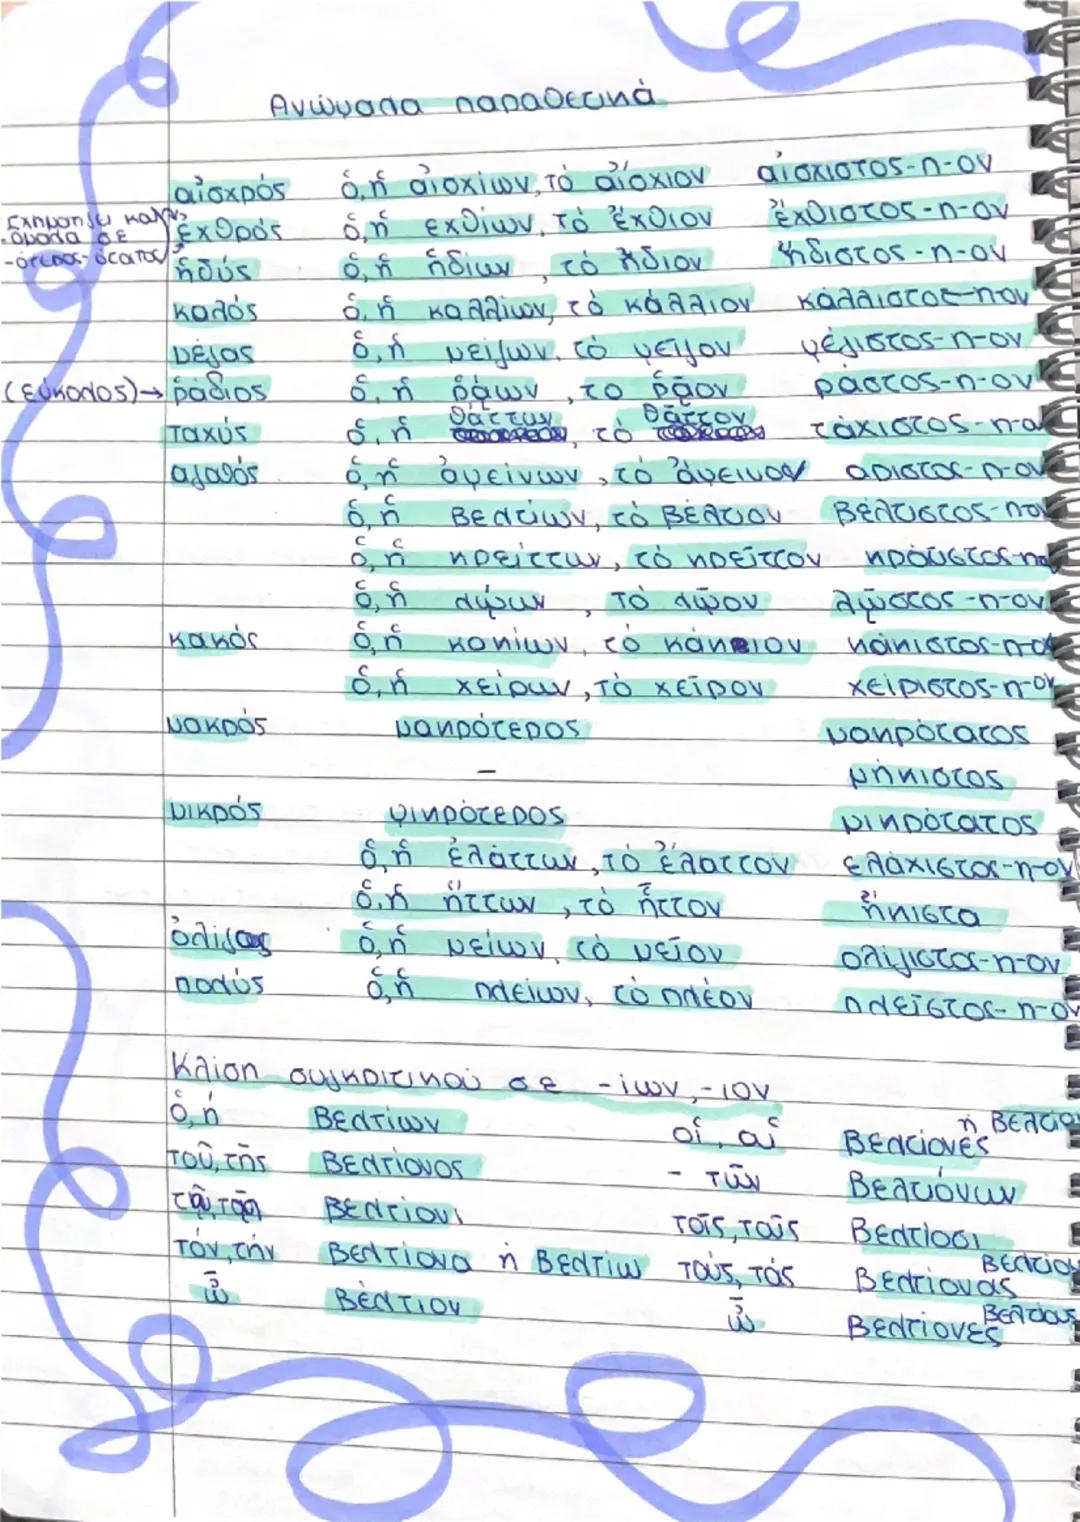 Ανώμαλα παραθετικά
αἰσχρός ὁ,ἡ αἰσχίων, τό αἴσχιον αἴσχιστος-η-ον
σχηματίζει και
ομαλά σε
-ότερος-ότατος
ἐχθρός ὁ,ἡ ἐχθίων, τό ἔχθιον ἔχθιστος-η-ον
ἡδύς ὁ,ἡ ἡδίων, τό ἥδιον ἥδιστος-η-ον
καλός ὁ,ἡ καλλίων, τό κάλλιον κάλλιστος-η-ον
μέγας ὁ,ἡ μείζων, τό μεῖζον μέγιστος-η-ον
(εύκολος)→ ῥάδιος ὁ,ἡ ῥάων, το ῥᾶον ρᾶστος-η-ον
ταχύς ὁ,ἡ θάττων, τό θᾶττον τάχιστος-η-ο
αγαθός ὁ,ἡ ἀμείνων, τό ἄμεινον αριστος-η-ον
ὁ,ἡ βελτίων, τό βέλτιον βέλτιστος-η-ον
ὁ,ἡ κρείττων, τό κρεῖττον κράτιστος-η-ο
ὁ,ἡ λῴων, τό λῷον λῷστος-η-ον
κακός ὁ,ἡ κακίων, τό κάκιον κάκιστος-η-ο
ὁ,ἡ χείρων, τό χεῖρον χείριστος-η-ον
μακρός μακρότερος μακρότατος
- μήκιστος
μικρός μικρότερος μικρότατος
ὁ,ἡ ἐλάττων, τό ἔλαττον ελάχιστος-η-ον
ὁ,ἡ ἥττων, τό ἧττον ἥκιστα
ὀλίγος ὁ,ἡ μείων, τό μεῖον ολίγιστος-η-ον
πολύς ὁ,ἡ πλείων, τό πλέον πλεῖστος-η-ον
Κλίση συγκριτικού σε -ιων, -ιον
ὁ,ἡ βελτίων οἱ, αἱ βελτίονες ἤ βελτίο
τοῦ, τῆς βελτίονος - τῶν βελτιόνων
τῷ, τῇ βελτίονι τοῖς, ταῖς βελτίοσι
τόν, τήν βελτίονα ἤ βελτίω τούς, τάς βελτίονας βελτίου
ὦ βέλτιον ὦ βελτίονες βελτίους